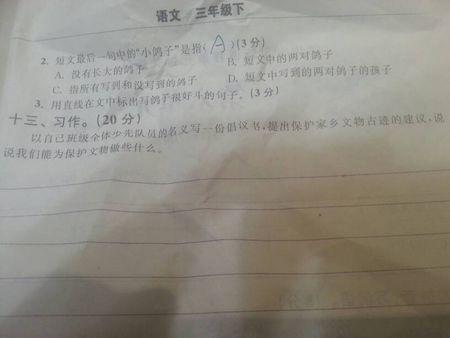 语文 三年级下
2. 短文最后一句中的“小鸽子”是指(A)(3分)
A. 没有长大的鸽子 B. 短文中的两对鸽子
C. 指所有写到和没写到的鸽子 D. 短文中写到的两对鸽子的孩子
3. 用直线在文中标出写鸽子很好斗的句子。(3分)
十三、习作。(20分)
以自己班级全体少先队员的名义写一份倡议书,提出保护家乡文物古迹的建议,说
说我们能为保护文物做些什么。